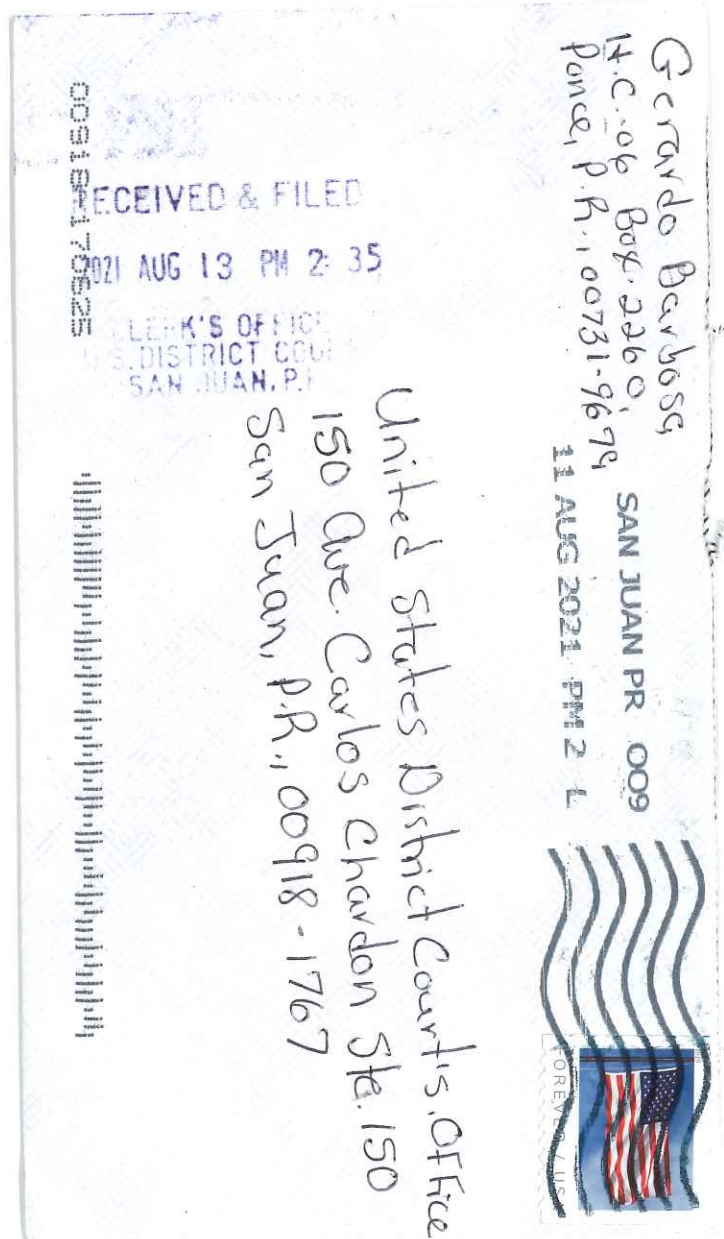 Gerardo Barbosa
H.C.-06 Box. 2260,
Ponce, P.R., 00731-9679
SAN JUAN PR 009
11 AUG 2021 PM 2 L
FOREVER / USA
United States District Court's. Office
150 Ave. Carlos Chardon Ste. 150
San Juan, P.R., 00918-1767
RECEIVED & FILED
2021 AUG 13 PM 2:35
CLERK'S OFFICE
U.S. DISTRICT COU
SAN JUAN, P.
00918-170625